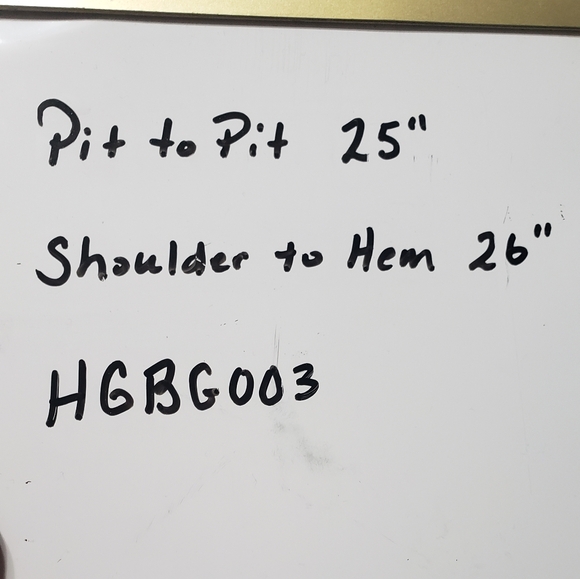 Pit to Pit 25"
Shoulder to Hem 26"
HGBG003